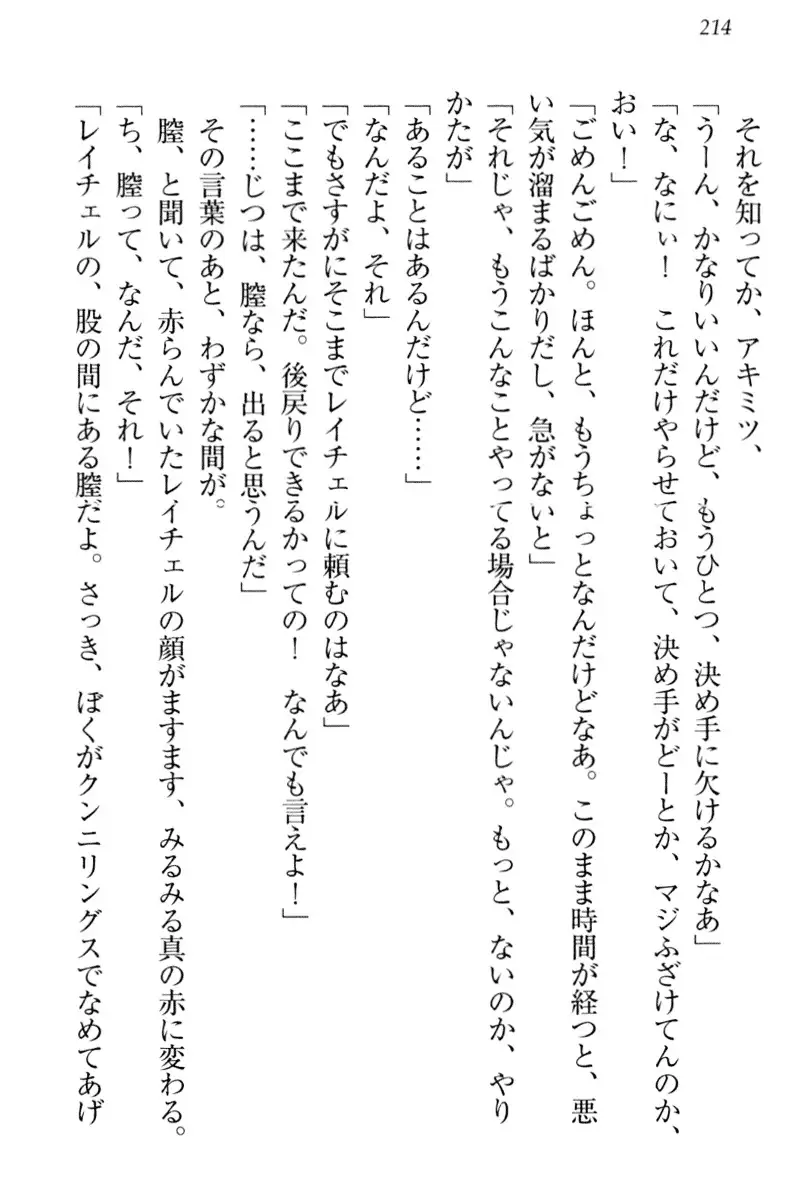 214
それを知ってか、アキミツ、
「うーん、かなりいいんだけど、もうひとつ、決め手に欠けるかなあ」
「な、なにぃ！　これだけやらせておいて、決め手がどーとか、マジふざけてんのか、
おい！」
「ごめんごめん。ほんと、もうちょっとなんだけどなあ。このまま時間が経つと、悪
い気が溜まるばかりだし、急がないと」
「それじゃ、もうこんなことやってる場合じゃないんじゃ。もっと、ないのか、やり
かたが」
「あることはあるんだけど……」
「なんだよ、それ」
「でもさすがにそこまでレイチェルに頼むのはなあ」
「ここまで来たんだ。後戻りできるかっての！　なんでも言えよ！」
「……じつは、膣なら、出ると思うんだ」
その言葉のあと、わずかな間が。
膣、と聞いて、赤らんでいたレイチェルの顔がますます、みるみる真の赤に変わる。
「ち、膣って、なんだ、それ！」
「レイチェルの、股の間にある膣だよ。さっき、ぼくがクンニリングスでなめてあげ